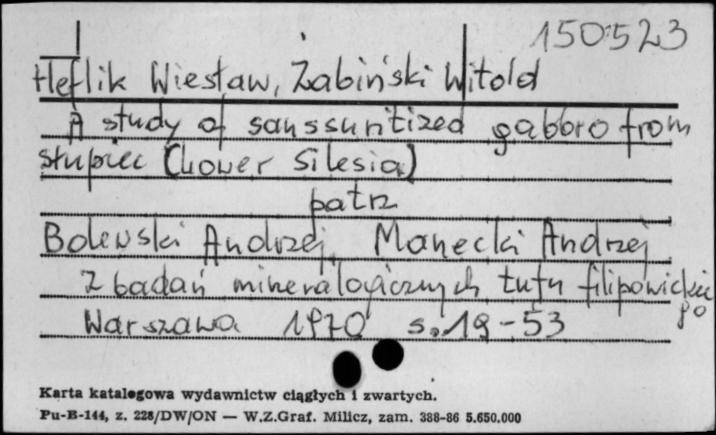 150523
Heflik Wiesław, Żabiński Witold
A study of saussuritized gabbro from
Słupiec (Lower Silesia)
patrz
Bolewski Andrzej, Manecki Andrzej
Z badań mineralogicznych tufu filipowickie
go
Warszawa 1970 s. 19-53
Karta katalogowa wydawnictw ciągłych i zwartych.
Pu-B-144, z. 228/DW/ON — W.Z.Graf. Milicz, zam. 388-86 5.650.000